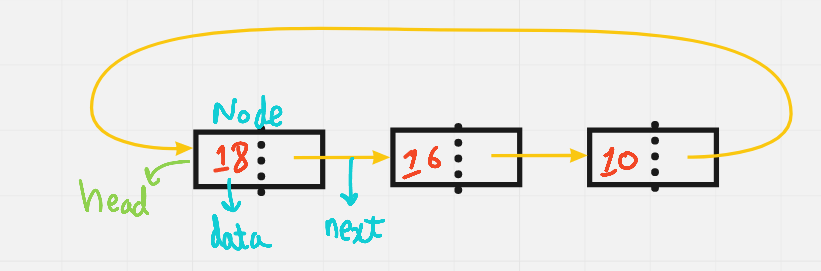 Node
18
16
10
head
data
next